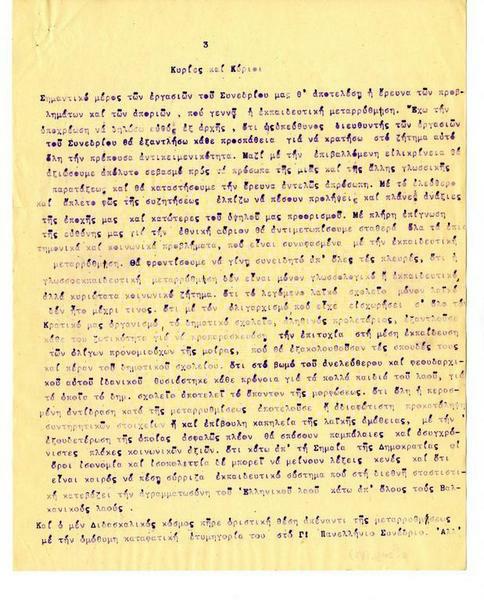 3
Κυρίες καί Κύριοι
Σημαντικό μέρος τῶν ἐργασιῶν τοῦ Συνεδρίου μας θ' ἀποτελέση ἡ ἔρευνα τῶν προβ-
λημάτων καί τῶν ἀποριῶν , πού γεννᾶ ἡ ἐκπαιδευτική μεταρρύθμιση. Ἔχω τήν
ὑποχρέωση νά δηλώσω εὐθύς ἐξ ἀρχῆς , ὅτι ὡς ὑπεύθυνος διευθυντής τῶν ἐργασιῶν
τοῦ Συνεδρίου θά ἐξαντλήσω κάθε προσπάθεια γιά νά κρατήσω στό ζήτημα αὐτό
ὅλη τήν πρέπουσα ἀντικειμενικότητα. Μαζί μέ τήν ἐπιβαλλόμενη εἰλικρίνεια θά
ἀξιώσουμε ἀπόλυτο σεβασμό πρός τά πρόσωπα τῆς μιᾶς καί τῆς ἄλλης γλωσσικῆς
παρατάξεως καί θά καταστήσουμε τήν ἔρευνα ἐντελῶς ἀπρόσωπη. Μέ τό ἐλεύθερο
καί ἄπλετο φῶς τῆς συζητήσεως ἐλπίζω νά πέσουν προλήψεις καί πλάνες ἀνάξιες
τῆς ἐποχῆς μας καί κατώτερες τοῦ ὑψηλοῦ μας προορισμοῦ. Μέ πλήρη ἐπίγνωση
τῆς εὐθύνης μας γιά τήν ἐθνική αὔριον θά ἀντιμετωπίσουμε σταθερά ὅλα τά ἐπισ
τημονικά καί κοινωνικά προβλήματα, πού εἶναι συνυφασμένα μέ τήν ἐκπαιδευτική
μεταρρύθμιση. Θά φροντίσουμε νά γίνη συνειδητό ἀπ' ὅλες τές πλευρές, ὅτι ἡ
γλωσσοεκπαιδευτική μεταρρύθμιση δέν εἶναι μόνον γλωσσολογικό ἤ ἐκπαιδευτικό,
ἀλλά κυριώτατα κοινωνικό ζήτημα. ὅτι τό λεγόμενο λαϊκό σχολεῖο μόνον λαϊκό
δέν ἦτο μέχρι τινος. ὅτι μέ τόν ὀλιγαρχισμό πού εἶχε εἰσχωρήσει σ' ὅλο τόν
Κρατικό μας ὀργανισμό, τό δημοτικό σχολεῖο, ἀληθινός προλετάριος, ἐξαντλοῦσε
κάθε του ζωτικότητα γιά νά προπαρασκευάση τήν ἐπιτυχία στή μέση ἐκπαίδευση
τῶν ὀλίγων προνομιούχων τῆς μοίρας, πού θά ἐξακολουθοῦσαν τές σπουδές τους
καί πέραν τοῦ δημοτικοῦ σχολείου. ὅτι στό βωμό τοῦ ἀνελεύθερου καί φεουδαρχι-
κοῦ αὐτοῦ ἰδανικοῦ θυσιάστηκε κάθε πρόνοια γιά τά πολλά παιδιά τοῦ λαοῦ, γιά
τά ὁποῖα τό δημ. σχολεῖο ἀποτελεῖ τό ἅπαντον τῆς μορφώσεως. ὅτι ὅλη ἡ περασ-
μένη ἀντίδραση κατά τῆς μεταρρυθμίσεως ἀποτελοῦσε ἤ ἀδιαφώτιστη προκατάληψη
συντηρητικῶν στοιχείων ἤ καί ἐπίβουλη καπηλεία τῆς λαϊκῆς ἀμάθειας, μέ τήν
ἐξουδετέρωση τῆς ὁποίας ἀσφαλῶς πλέον θά σπάσουν παμπάλαιες καί ἀσυγχρό-
νιστες πλάκες κοινωνικῶν ἀξιῶν. ὅτι κάτω ἀπ' τή Σημαία τῆς Δημοκρατίας οἱ
ὅροι ἰσονομία καί ἰσοπολιτεία δέ μπορεῖ νά μείνουν λέξεις κενές καί ὅτι
εἶναι καιρός νά πέση σύρριζα ἐκπαιδευτικό σύστημα πού στή διεθνῆ στατιστι-
κή κατεβάζει τήν ἀγραμματωσύνη τοῦ Ἑλληνικοῦ λαοῦ κάτω ἀπ' ὅλους τούς Βαλ-
κανικούς λαούς .
Καί ὁ μέν Διδασκαλικός κόσμος πῆρε ὁριστική θέση ἀπέναντι τῆς μεταρρυθμίσεως
μέ τήν ὁμόθυμη καταφατική ἐτυμηγορία του στό Γ! Πανελλήνιο Συνέδριο. Ἀλλ'